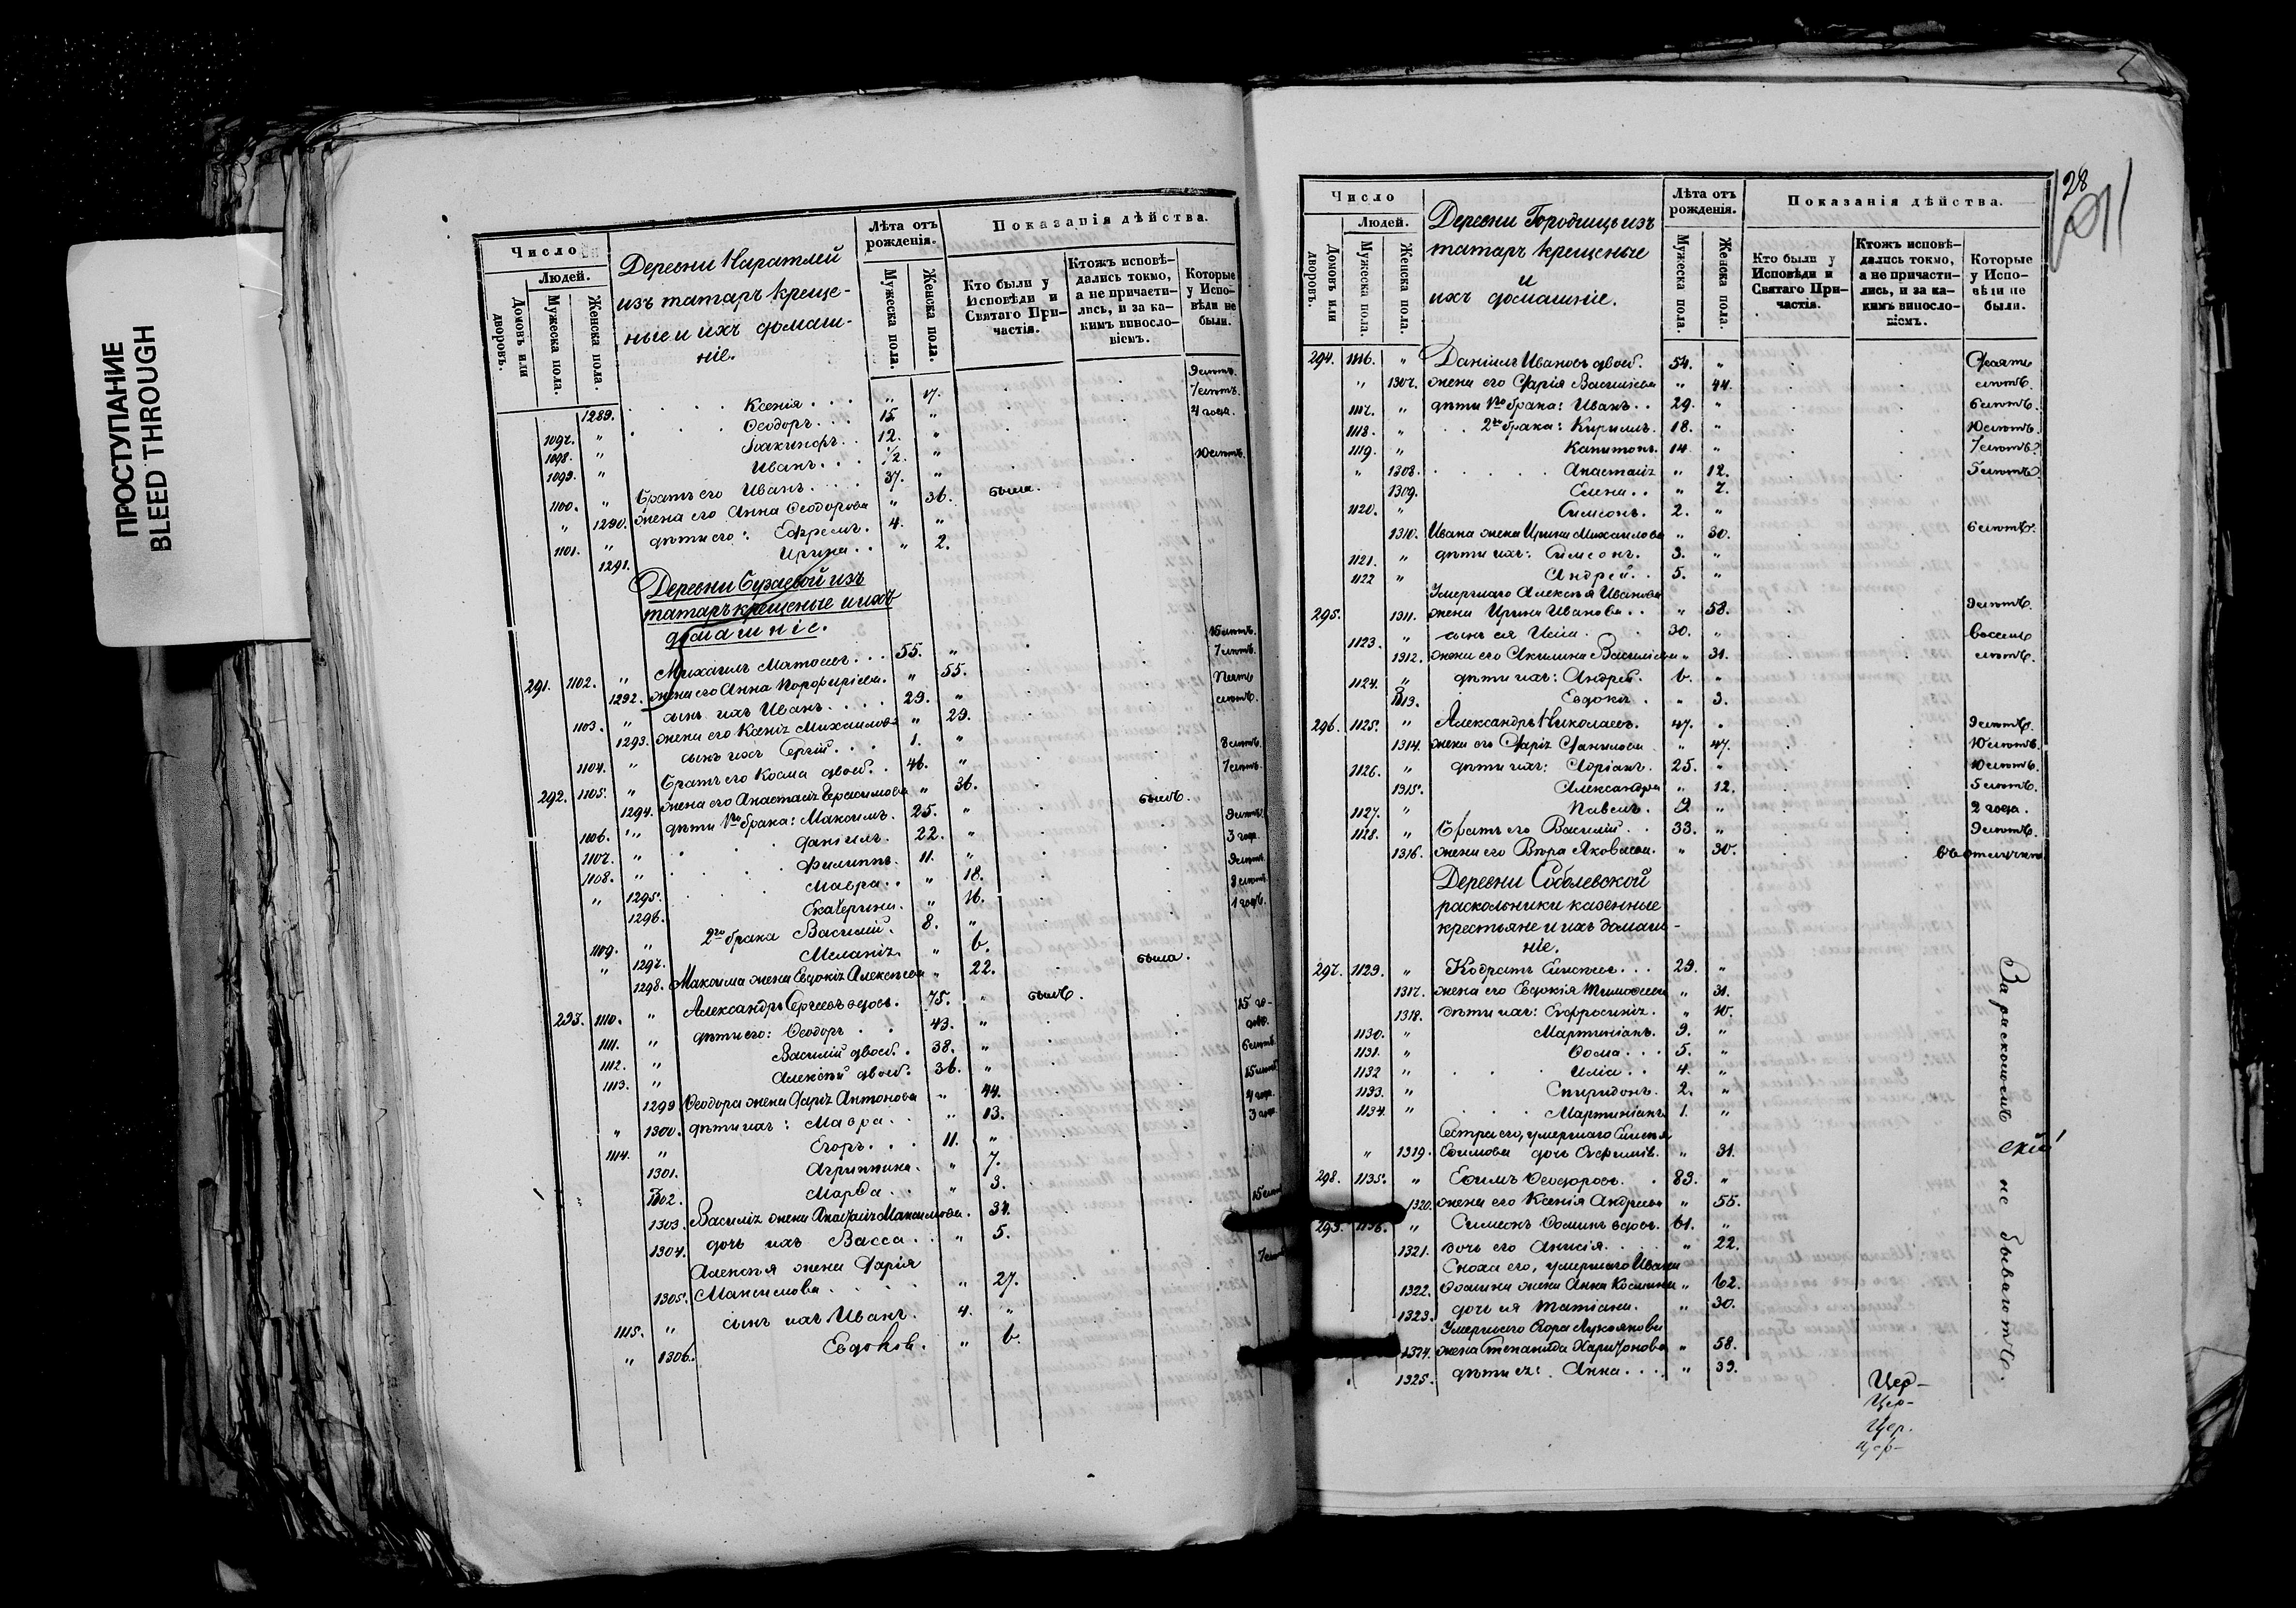 ПРОСТУПАНИЕ
BLEED THROUGH
Число
Людей.
Домовъ или дворовъ.
Мужеска пола.
Женска пола.
Деревни Наратлей
изъ татаръ креще-
ные и ихъ домаш-
ніе.
Лѣта отъ рожденія.
Мужеска пола.
Женска пола.
Показанія дѣйства.
Кто были у Исповѣди и Святаго Причастія.
Ктожъ исповѣ-дались токмо, а не причасти-лись, и за ка-кимъ винословіемъ.
Которые у Испо-вѣди не были.
1289. Ксенія . . . „ 17. 9 лѣтъ.
1097. „ Ѳеодоръ . . . 15. „ 7 лѣтъ.
1098. „ Іоакинфъ . . 12. „ 4 года.
1099. „ Иванъ . . . 1/2. „
1100. „ Братъ его Иванъ . . . 37. „ 10 лѣтъ.
„ 1290. жена его Анна Ѳеодорова „ 36. была.
1101. „ дѣти его: Ефремъ. 4. „
1291. Ирина . . „ 2.
татаръ крещеные и ихъ
домашніе.
291. 1102. „ Михаилъ Матѳеев . . . 55. „ 15 лѣтъ.
1292. жена его Анна Порфирьева. „ 55. 7 лѣтъ.
1103. „ сынъ ихъ Иванъ . . . . 29. „ Пять
1293. жена его Ксенія Михаилова „ 29. лѣтъ.
1104. „ сынъ ихъ Сергій . . . 1. „
292. 1105. „ Братъ его Косма двоеб. . 46. „ 8 лѣтъ.
1294. жена его Анастасія Герасимова „ 36. 7 лѣтъ.
1106. „ дѣти 1го брака: Максимъ. 25. „ былъ.
1107. „ Даніилъ. 22. „ 9 лѣтъ.
1108. „ Филиппъ. 11. „ 3 год.
„ 1295. Мавра . . „ 18. 9 лѣтъ.
1296. Екатерина. „ 16. 9 лѣтъ.
1109. „ 2го брака Василій. 8. „ 1 годъ.
„ 1297. Меланія „ 6.
1298. Максима жена Евдокія Алексѣева „ 22. была.
293. 1110. „ Александръ Сергеевъ вдовъ. 75. „ былъ.
1111. „ дѣти его: Ѳеодоръ . . 43. „ 15 го-
довъ.
1112. „ Василій двоеб. . 38. „ 6 лѣтъ.
1113. „ Алексѣй двоеб. 36. „ 15 лѣтъ
1299 Ѳеодора жена Дарія Антонова „ 44. 4 год.
„ 1300. дѣти ихъ: Мавра . . „ 13. 3 год.
1114. „ Егоръ . . . 11. „
1301. Агриппина. „ 7.
1302. Марѳа . . „ 3.
1303. Василія жена Анастасія Максимова. 34. 15 лѣтъ
1304. дочь ихъ Васса . . „ 5.
Алексѣя жена Дарія
1305. Максимова . . . . „ 27.
1115. „ сынъ ихъ Иванъ. 4. „
„ 1306. „ 6.
28
Число
Людей.
Домовъ или дворовъ.
Мужеска пола.
Женска пола.
Деревни Городищъ изъ
татаръ крещеные
и
ихъ домашніе.
Лѣта отъ рожденія.
Мужеска пола.
Женска пола.
Показанія дѣйства.
Кто были у Исповѣди и Святаго При-частія.
Ктожъ исповѣ-дались токмо, а не причасти-лись, и за ка-кимъ винословіемъ.
Которые у Испо-вѣди не были.
294. 1116. „ Даніилъ Ивановъ двоеб. 54. „
„ 1307. жена его Марія Васильева „ 44. лѣтъ.
1117. „ дѣти 1го брака: Иванъ . . 29. „ 6 лѣтъ.
1118. „ . . 2го брака: Кириллъ. 18. „ 10 лѣтъ.
1119. „ Капитонъ. 14. „ 7 лѣтъ.
„ 1308. Анастасія „ 12. 5 лѣтъ.
1309. Елена . . „ 7.
1120. „ Симеонъ. 2. „
1310. Ивана жена Ирина Михаилова „ 30. 6 лѣтъ.
1121. „ дѣти ихъ: Симеонъ. 3. „
1122 „ Андрей. . 5. „
Умершаго Алексѣя Иванова
295. 1311. жена Ирина Иванова . . „ 58. 9 лѣтъ.
1123. „ сынъ ея Илія. . 30. „ восемь
1312. жена его Акилина Васильева „ 31. лѣтъ.
1124. „ дѣти ихъ: Андрей. 6. „
1313. Евдокія . „ 3.
296. 1125. „ Александръ Николаевъ. 47. „ 9 лѣтъ.
1314. жена его Дарія Данилова . „ 47. 10 лѣтъ.
1126. „ дѣти ихъ: Адріанъ. 25. „ 10 лѣтъ.
1315. Александра „ 12. 5 лѣтъ.
1127. „ Павелъ. 9. „ 2 года.
1128. „ Братъ его Василій . . 33. „ 9 лѣтъ.
1316. жена его Вѣра Яковлева. „ 30. въ отлучкѣ
Деревни Соболевской
раскольники казенные
крестьяне и ихъ домаш-
ніе.
297. 1129. „ Кодратъ Елисѣевъ . . . 29. „
1317. жена его Евдокія Тимоѳеева „ 31.
1318. дѣти ихъ: Евфросинія. „ 10.
1130. „ Мартиніанъ. 9. „
1131. „ Ѳома . . . 5. „
1132 „ Илія . . 4. „
1133. „ Спиридонъ. 2. „
1134. „ Мартиніанъ 1. „
Сестра его, умершаго Елисѣя
„ 1319. Ефимова дочь „ 31.
298. 1135. „ Ефимъ Ѳеодоровъ. . 83. „
1320. жена его Ксенія Андреева „ 55.
299. 1136. „ Симеонъ Ѳоминъ вдовъ. 61. „
1321. дочь его Анисія . . . „ 22.
Сноха его, умершаго Ивана
1322. Ѳомина жена Анна Космина „ 62.
1323. дочь ея Татіана. „ 30.
Умершаго Лукоянова
1324. жена Степанида Харитонова „ 58.
1325. дѣти ея: Анна . . . . „ 39.
За расколомъ не бываютъ.
Цер-
Цер-
Цер.
Цер-